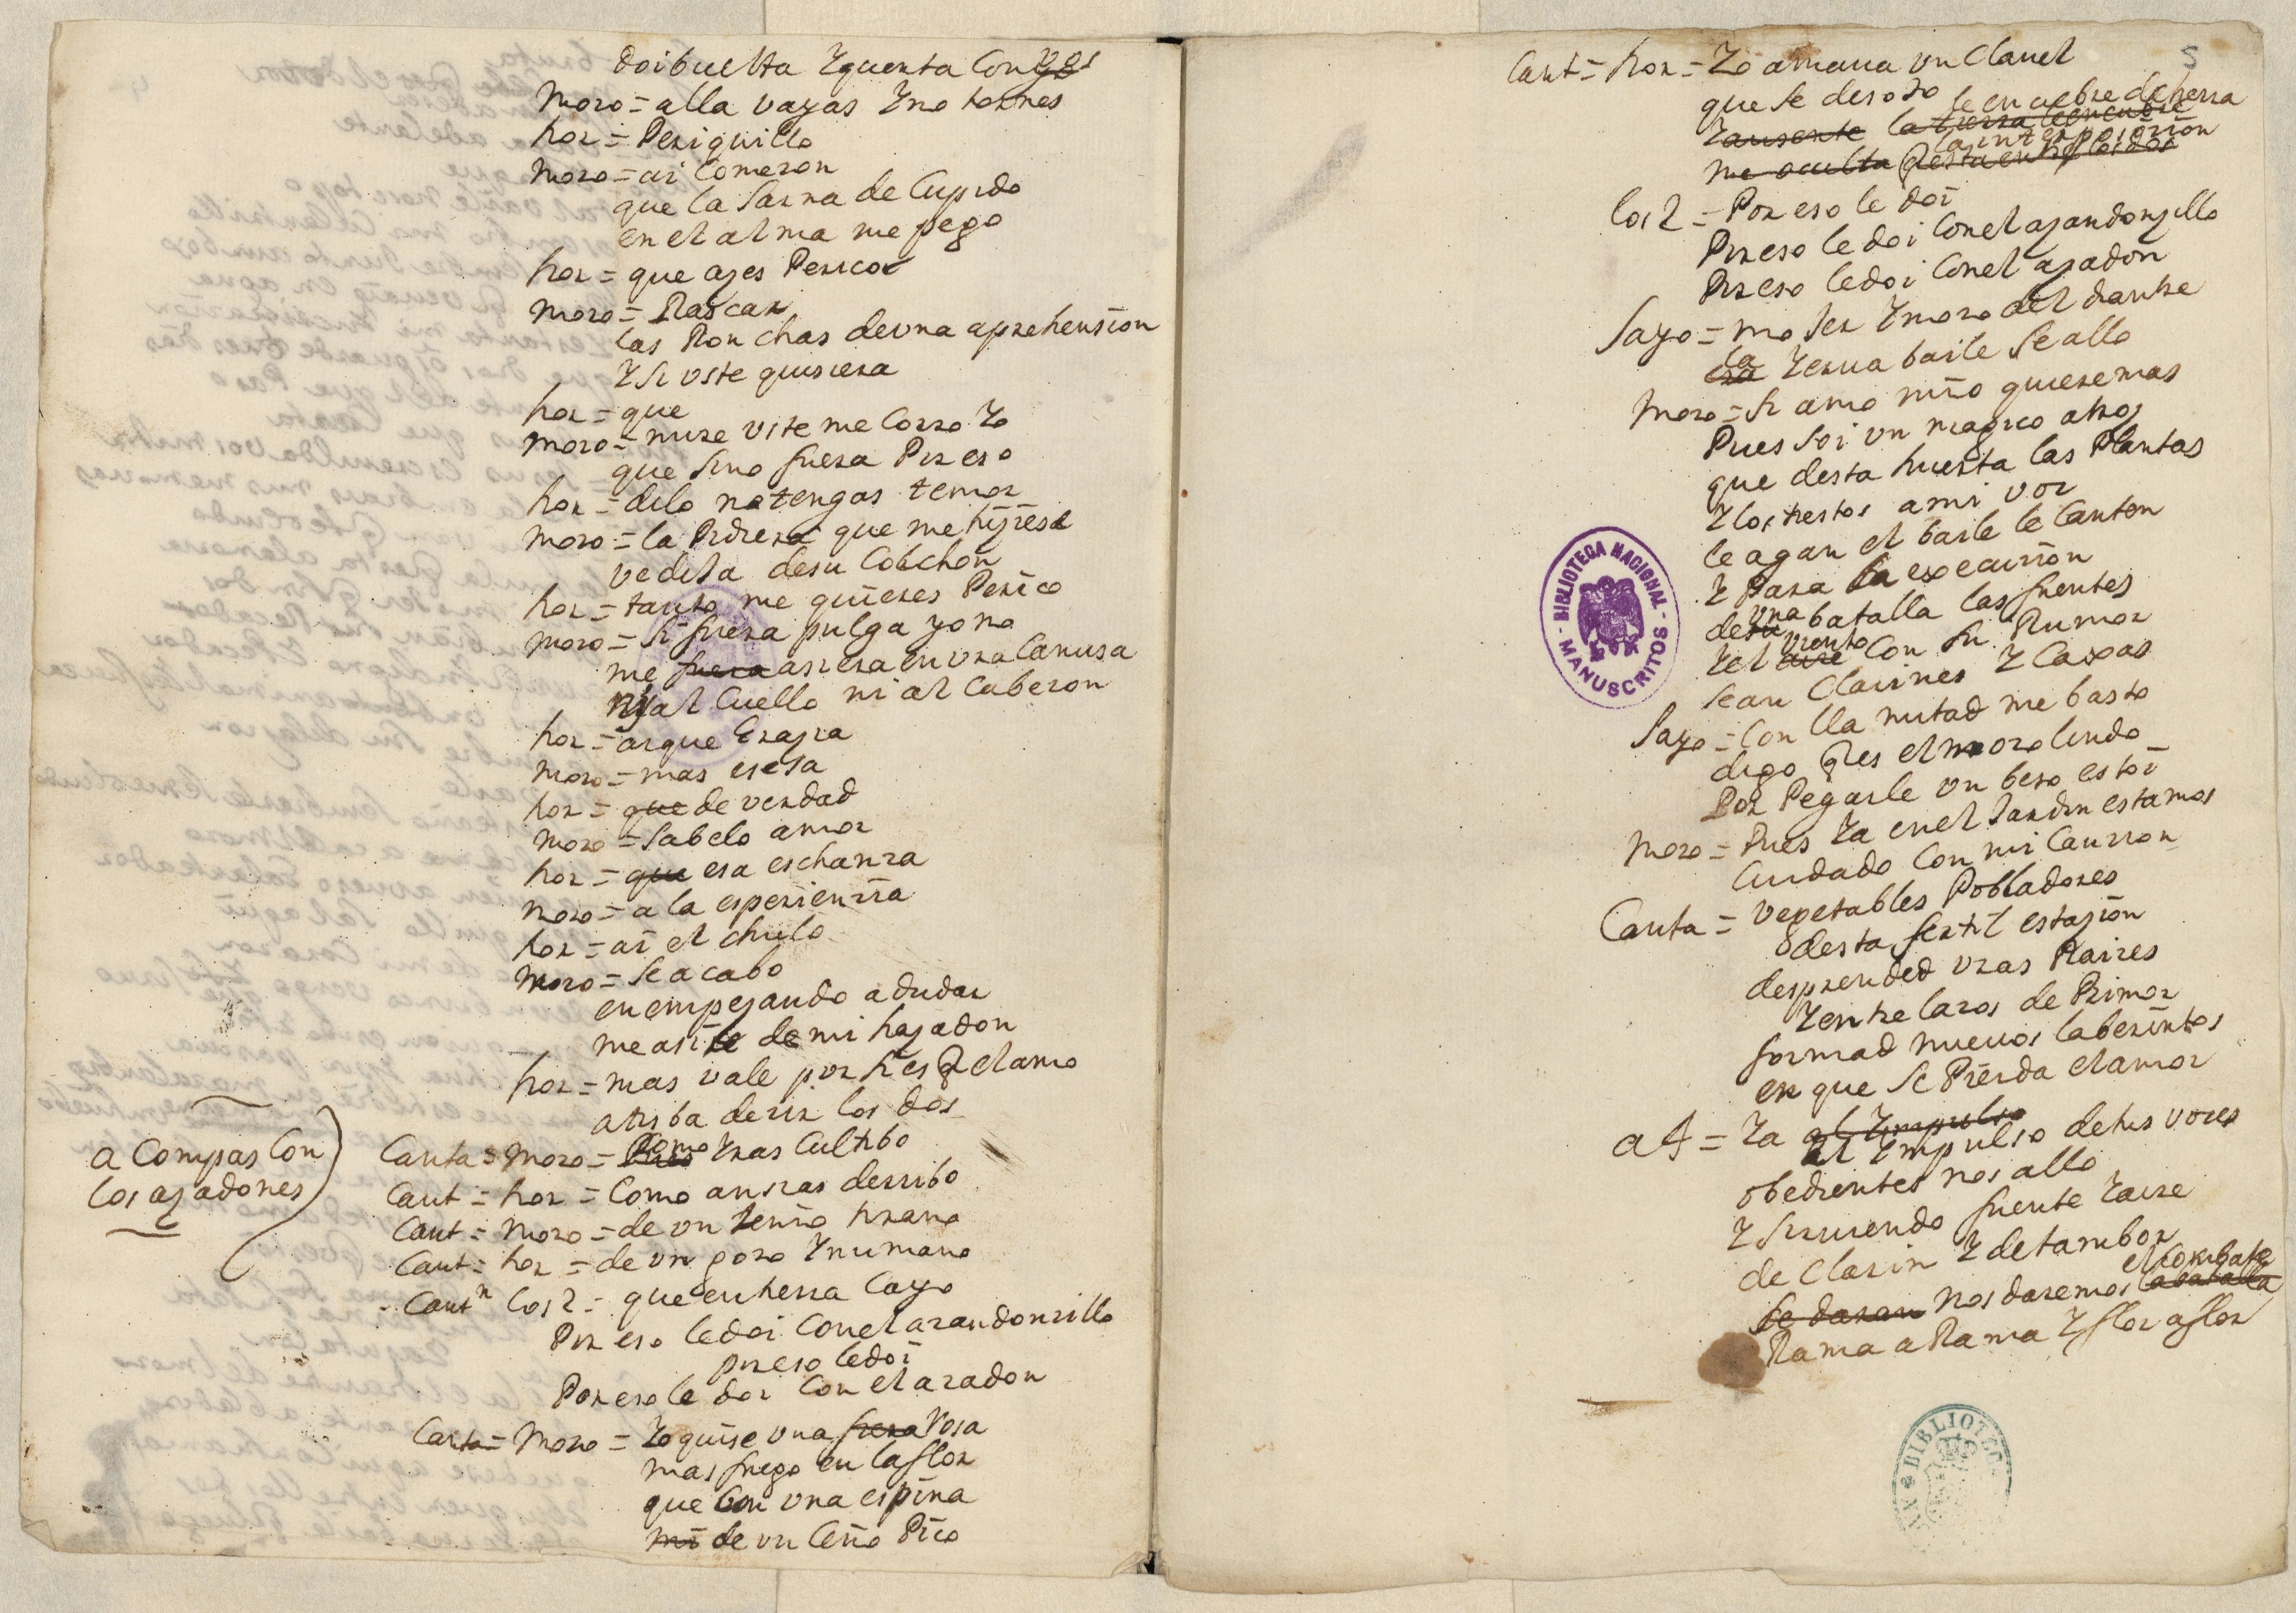 doi buelta Yquenta Con
moro = alla vayas Yno tornes
hor = Periquillo
moro = ai Comeron
que la Sarna de Cupido
en el alma me pego
hor = que ajes Perico
moro = Rascar
las Ronchas de una aprehension
Y si uste quisiera
hor = que
moro = mire uste me Corro Yo
que sino fuera Por eso
hor = dilo no tengas temor
moro = la Pidiera que me hijiese
vedixa de su Colchon
hor = tanto me quieres Perico
moro = Si fuera pulga yo no
me fuera asiera en una Camisa
ni al Cuello ni al Caberon
hor = ai que Grazia
moro = mas es esa
hor = que de verdad
moro = Sabelo amor
hor = que esa es chanza
moro = a la esperienzia
hor = ai el chulo
moro = Se acabo
en empezando a dudar
me asire de mi hazadon
hor = mas vale por tres q el amo
arriba dezir los dos
a Compas Con
los azadones
Canta = moro = Como Yras Cultibo
Cant = hor = Como ansias derribo
Cant = moro = de un Zeño tirano
Cant = hor = de un gozo Ynumano
Cant.n los 2 = que en tierra Cayo
Por eso le doi Con el azandonzillo
por eso le doi
Por eso le doi Con el azadon
Canta = Moro = Yo quise una fiera Rosa
mas fuego en la flor
que Con una espina
mi de un Ceño Pico
5
Cant = hor = Yo amaua un Clauel
que se desojo
se encubre de tierra
Yausente la tierra le encubre
la interposizion
me oculta
los 2 = Por eso le doi
Por eso le doi Con el azandonzillo
Por eso le doi Con el azadon
Sayo = moser Ymoro del diantre
la Yerua baile Se allo
Moro = Si amo mio quiere mas
Pues Soi un magico atroz
que desta huerta las Plantas
Y los tiestos a mi voz
le agan el baile le Canten
Y Para la execuzion
de su una batalla las fuentes
Y el aire viento Con Su Rumor
Sean Clarines Y Caxas
Sayo = Con lla mitad me basto
digo q es el moro lindo
Por Pegarle un beso estoi
Moro = Pues Ya en el Jardin estamos
Cuidado Con mi Canzion
Canta = vegetables Pobladores
desta fertil estazion
desprended uras Raizes
Y entre lazos de Primor
formad nueuos laberintos
en que Se Pierda el amor
a 4 = Ya al Ympulso
al Ympulso de tus vozes
obedientes nos allo
Y siruiendo fuente Y aire
de Clarin Y de tambor
el Combate
Se daran Nos daremos la batalla
Rama a Rama Y flor a flor
BIBLIOTECA NACIONAL
MANUSCRITOS
BIBLIOTEC